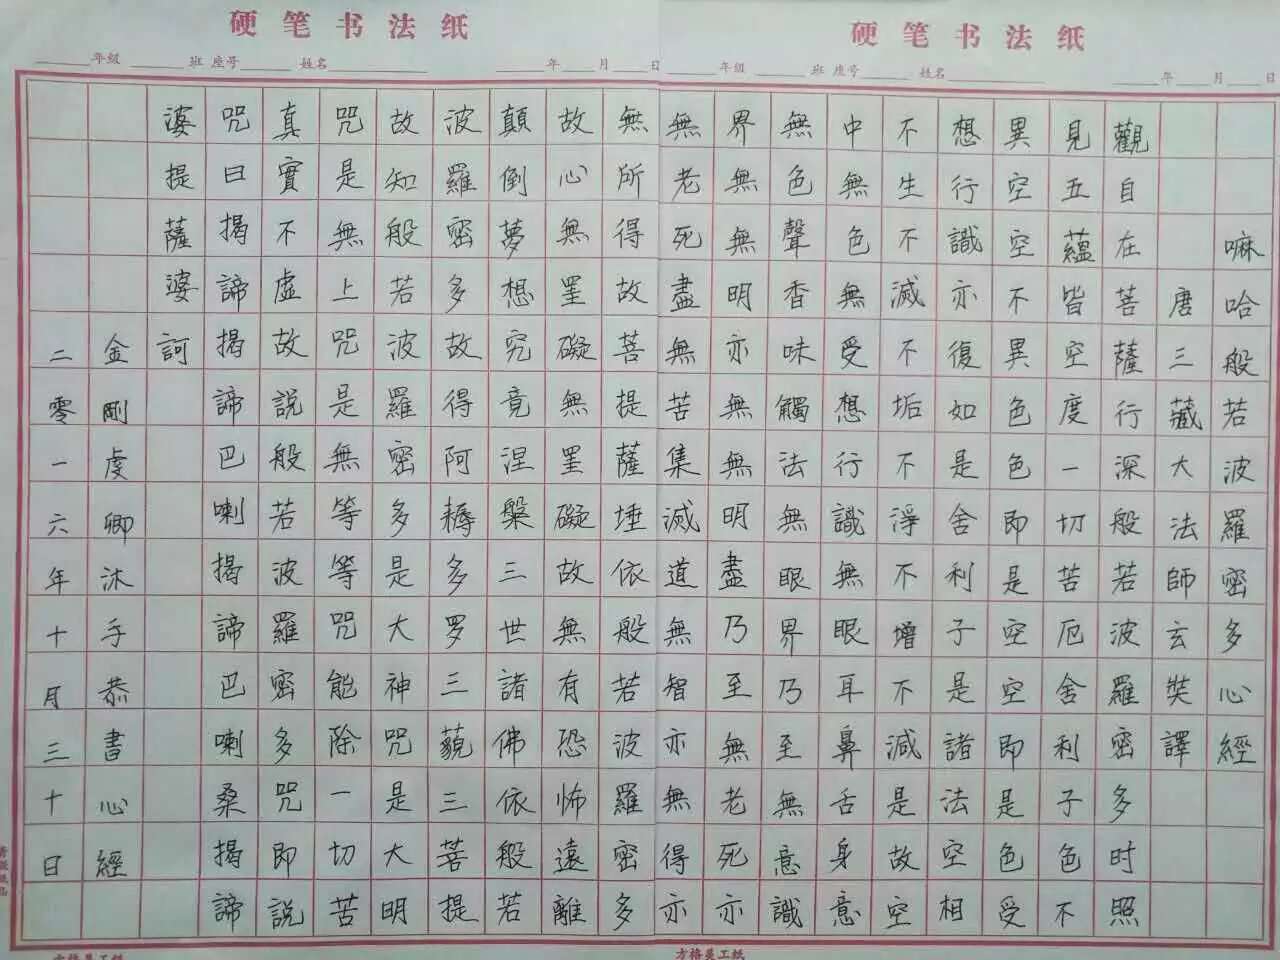 硬笔书法纸
年级 班 座号 姓名 年 月 日
硬笔书法纸
年级 班 座号 姓名 年 月 日
嘛哈般若波羅密多心經
唐三藏大法師玄奘譯
觀自在菩薩行深般若波羅密多时照
見五蘊皆空度一切苦厄舍利子色不
異空空不異色色即是空空即是色受
想行識亦復如是舍利子是諸法空相
不生不滅不垢不淨不增不減是故空
中無色無受想行識無眼耳鼻舌身意
無色聲香味觸法無眼界乃至無意識
界無無明亦無無明盡乃至無老死亦
無老死盡無苦集滅道無智亦無得亦
無所得故菩提薩埵依般若波羅密多
故心無罣礙無罣礙故無有恐怖遠離
顛倒夢想究竟涅槃三世諸佛依般若
波羅密多故得阿耨多罗三藐三菩提
故知般若波羅密多是大神咒是大明
咒是無上咒是無等等咒能除一切苦
真實不虛故說般若波羅密多咒即說
咒曰揭諦揭諦巴喇揭諦巴喇桑揭諦
婆提薩婆訶
金剛虔卿沐手恭書心經
二零一六年十月三十日
方格美工纸
方格美工纸